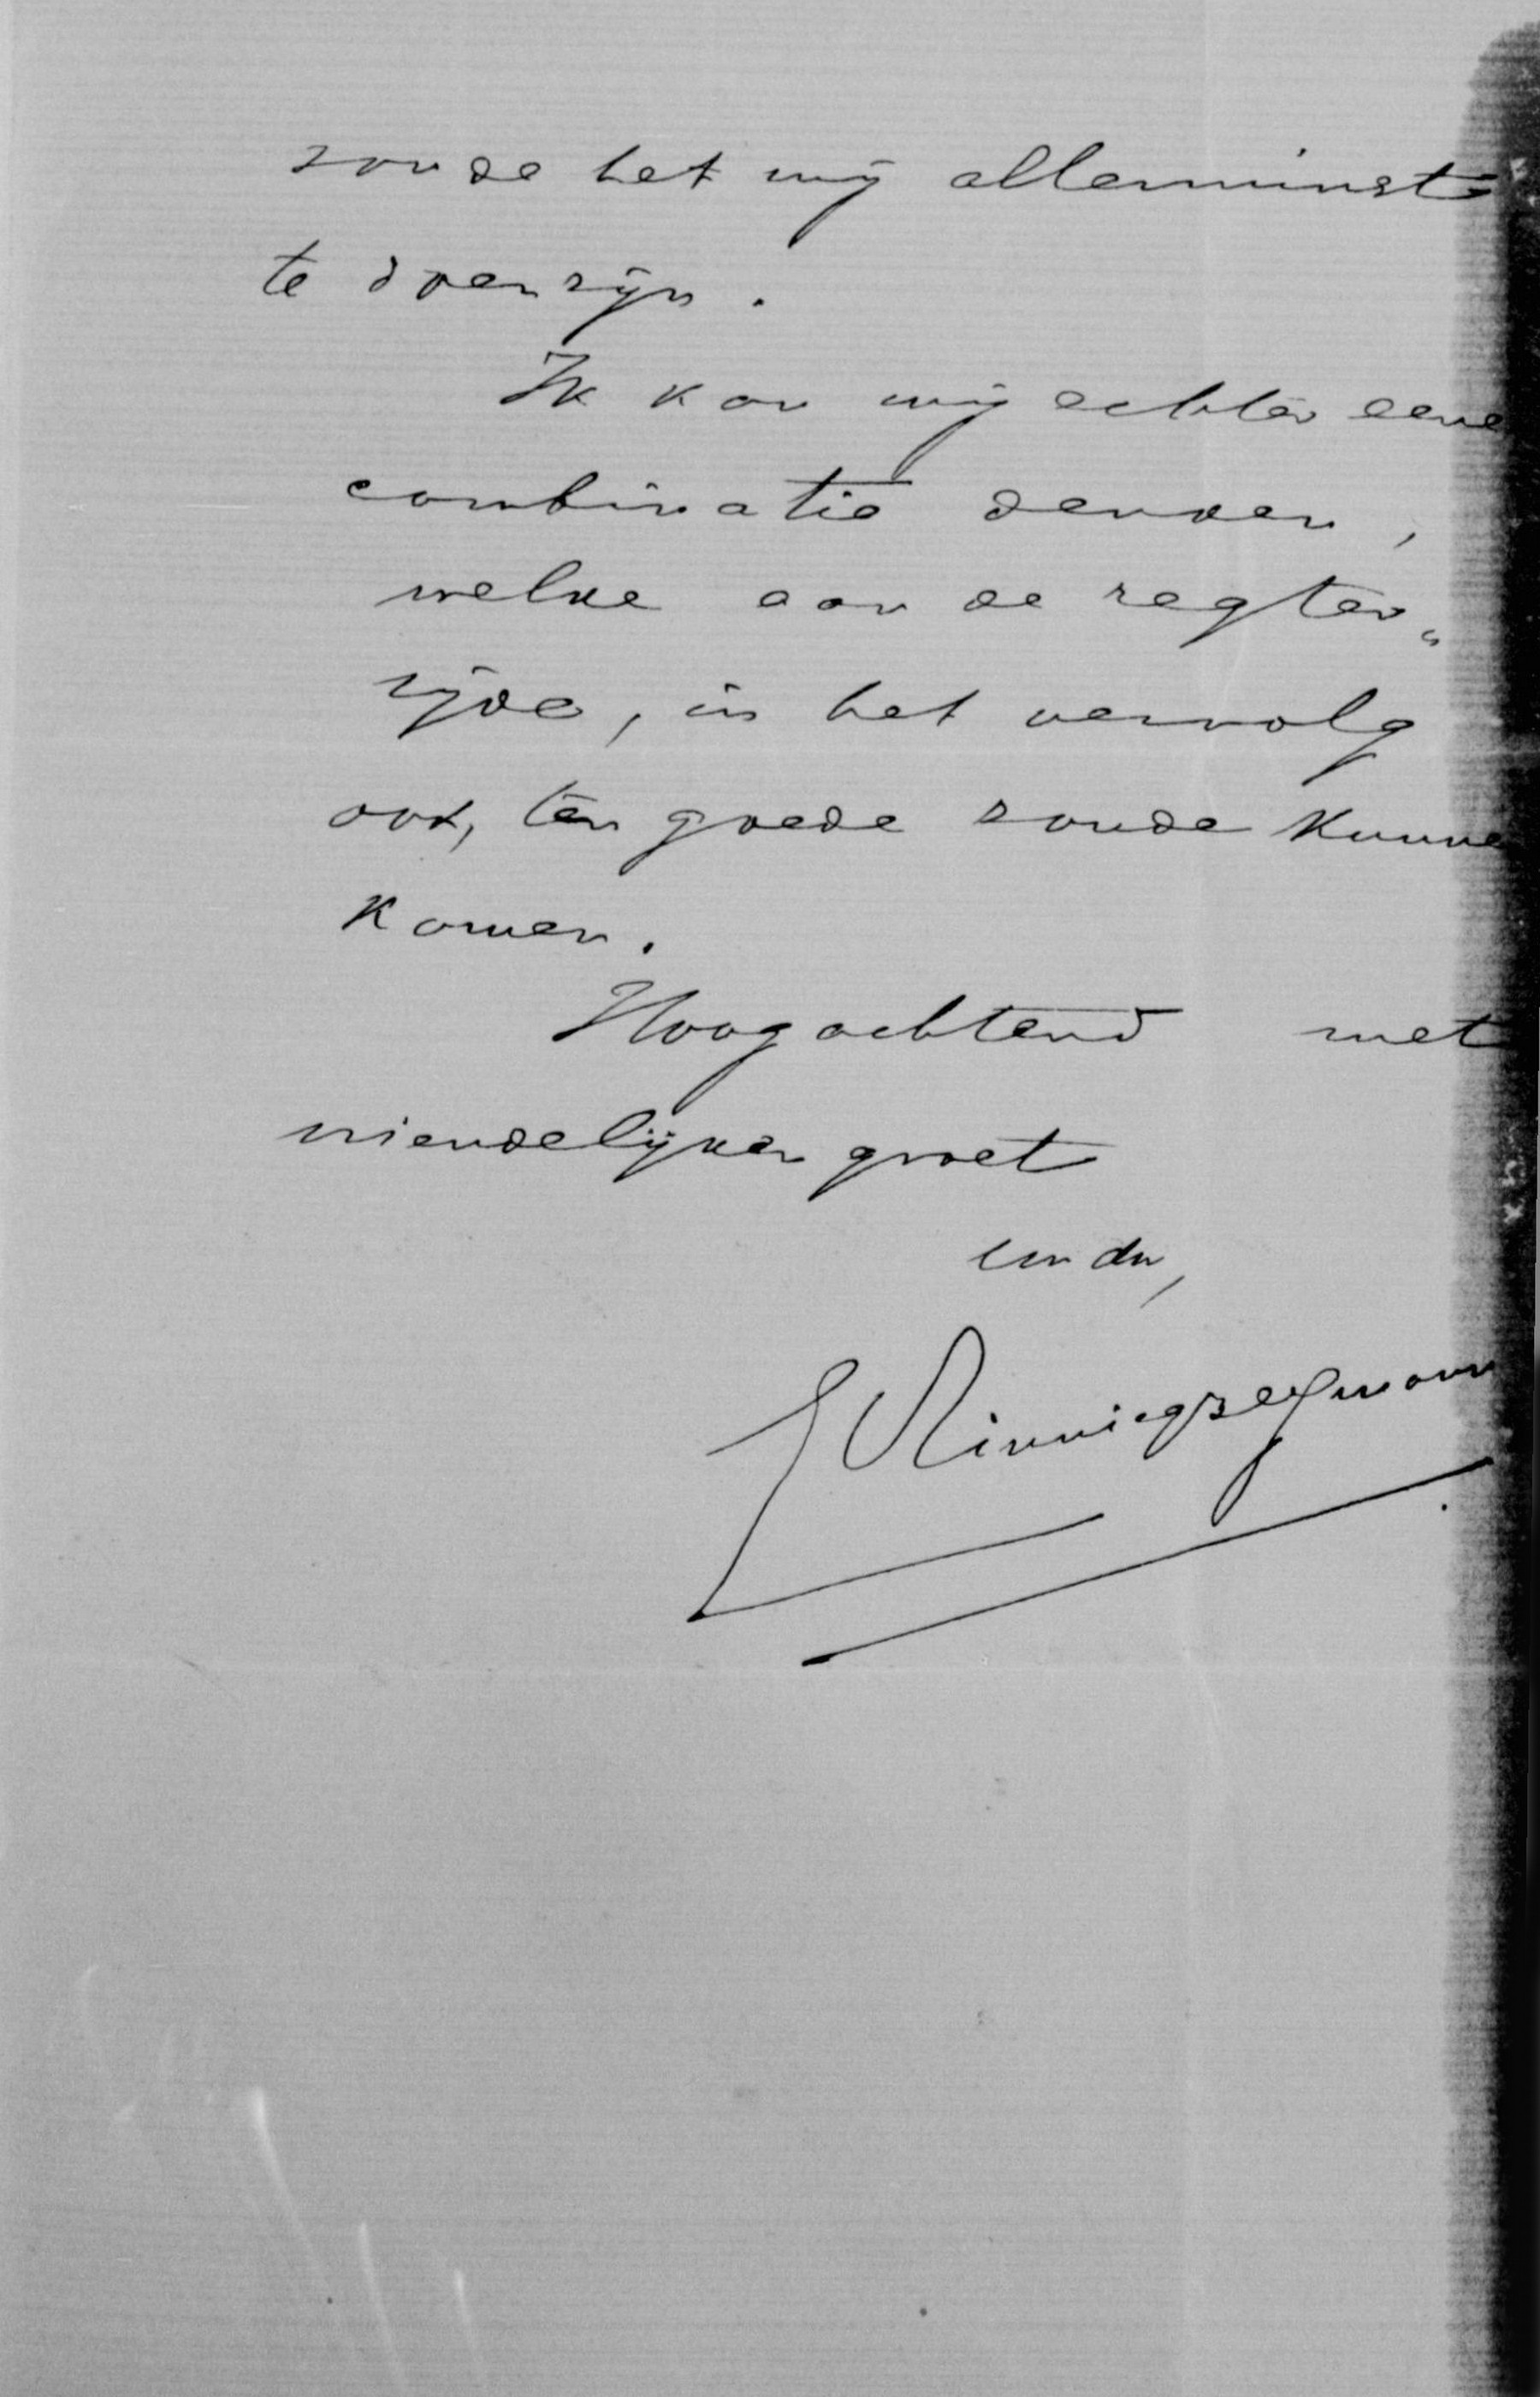 zoude het mij allerminst
te doen zijn.
Ik kan mij echter eene
combinatie denken,
welke aan de regter„
zijde, in het vervolg
ook, ten goede zoude kunne
komen.
Hoogachtend met
vriendelijken groet
uw dw,